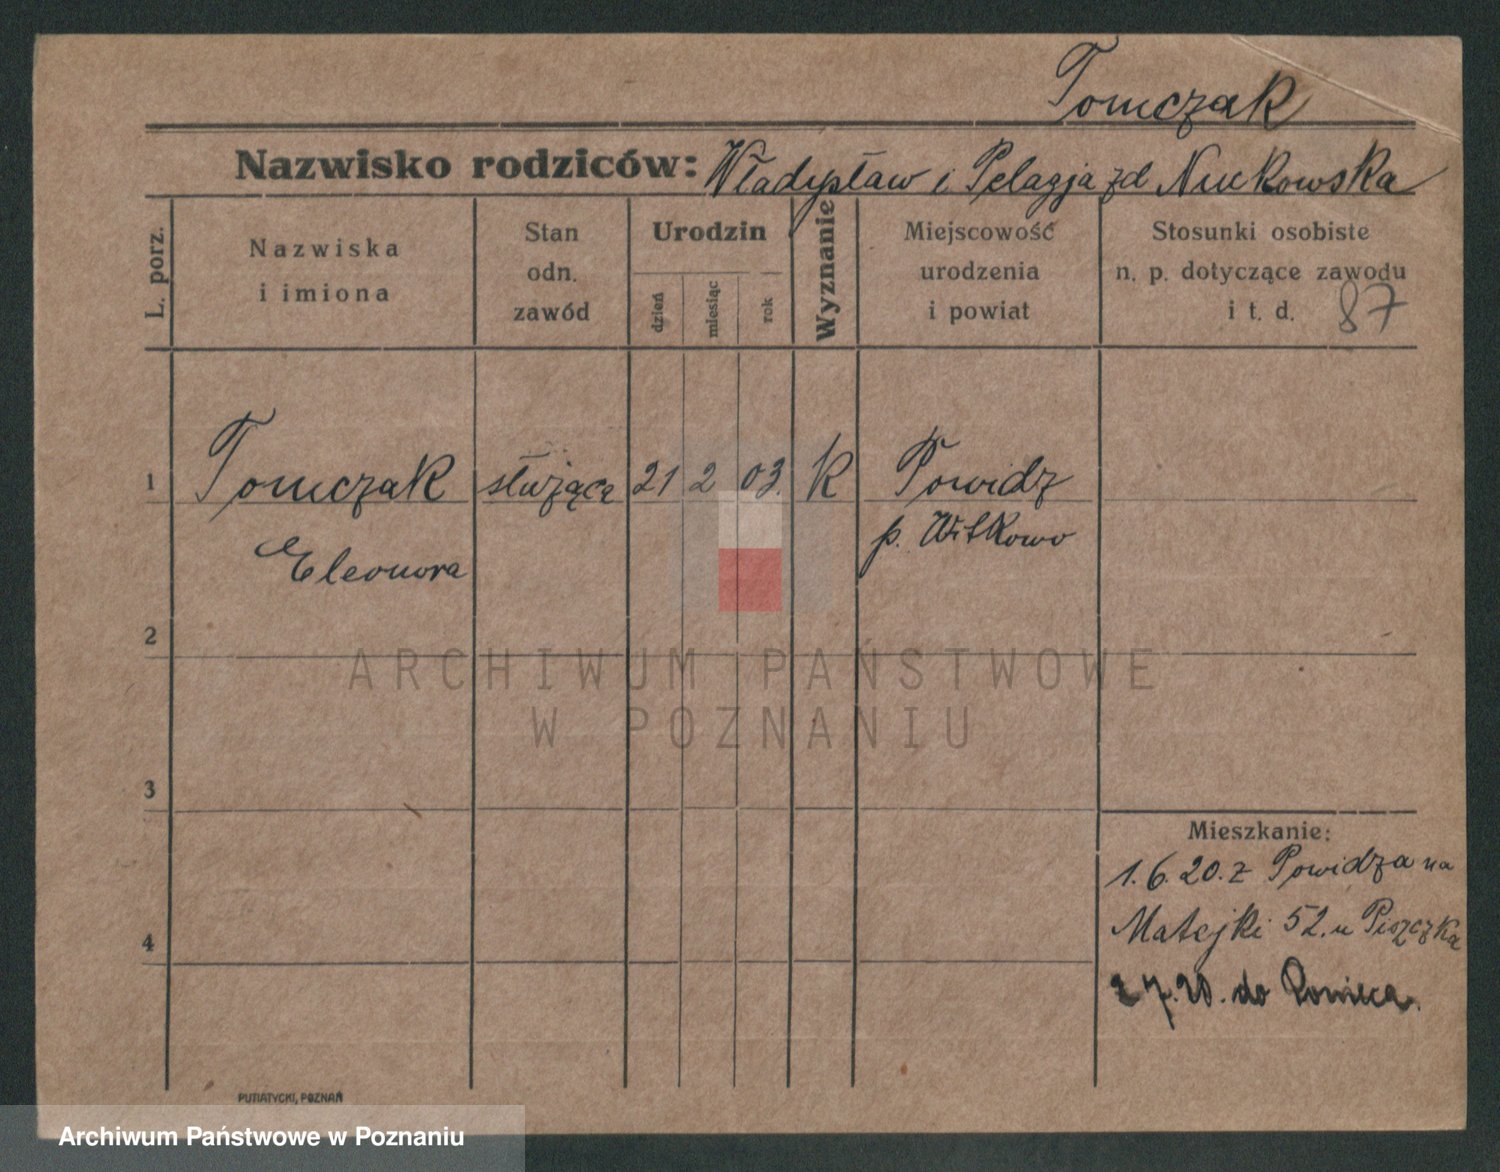 Tomczak
Nazwisko rodziców: Władysław i Pelagja zd Nuckowska
L. porz.
Nazwiska
i imiona
Stan
odn.
zawód
Urodzin
dzień
miesiąc
rok
Wyznanie
Miejscowość
urodzenia
i powiat
Stosunki osobiste
n. p. dotyczące zawodu
i t. d. 87
1 Tomczak służąca 21 2 03. K Powidz
Eleonora p. Witkowo
2
ARCHIWUM PAŃSTWOWE
W POZNANIU
3
Mieszkanie:
1.6.20. z Powidza na
Matejki 52. u Piszczka
4
2 7.20. do
PUTIATYCKI, POZNAŃ
Archiwum Państwowe w Poznaniu